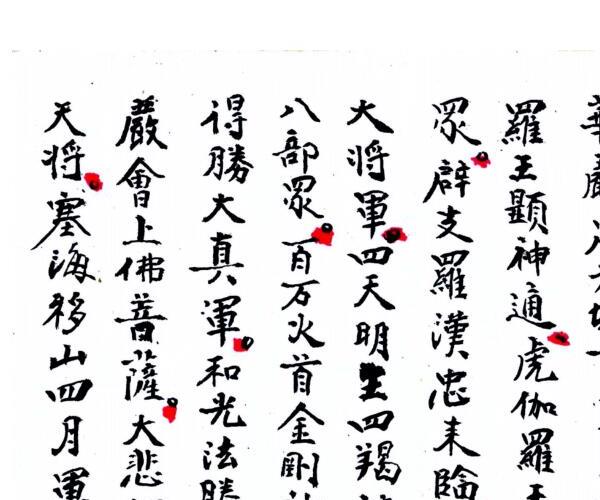 羅王顯神通虎伽羅
眾辟支羅漢忠来臨
大将軍四天明王四羯
八部眾一百万火首金剛
得勝大真軍和光法勝
嚴會上佛普薩大悲
天将塞海移山四月軍